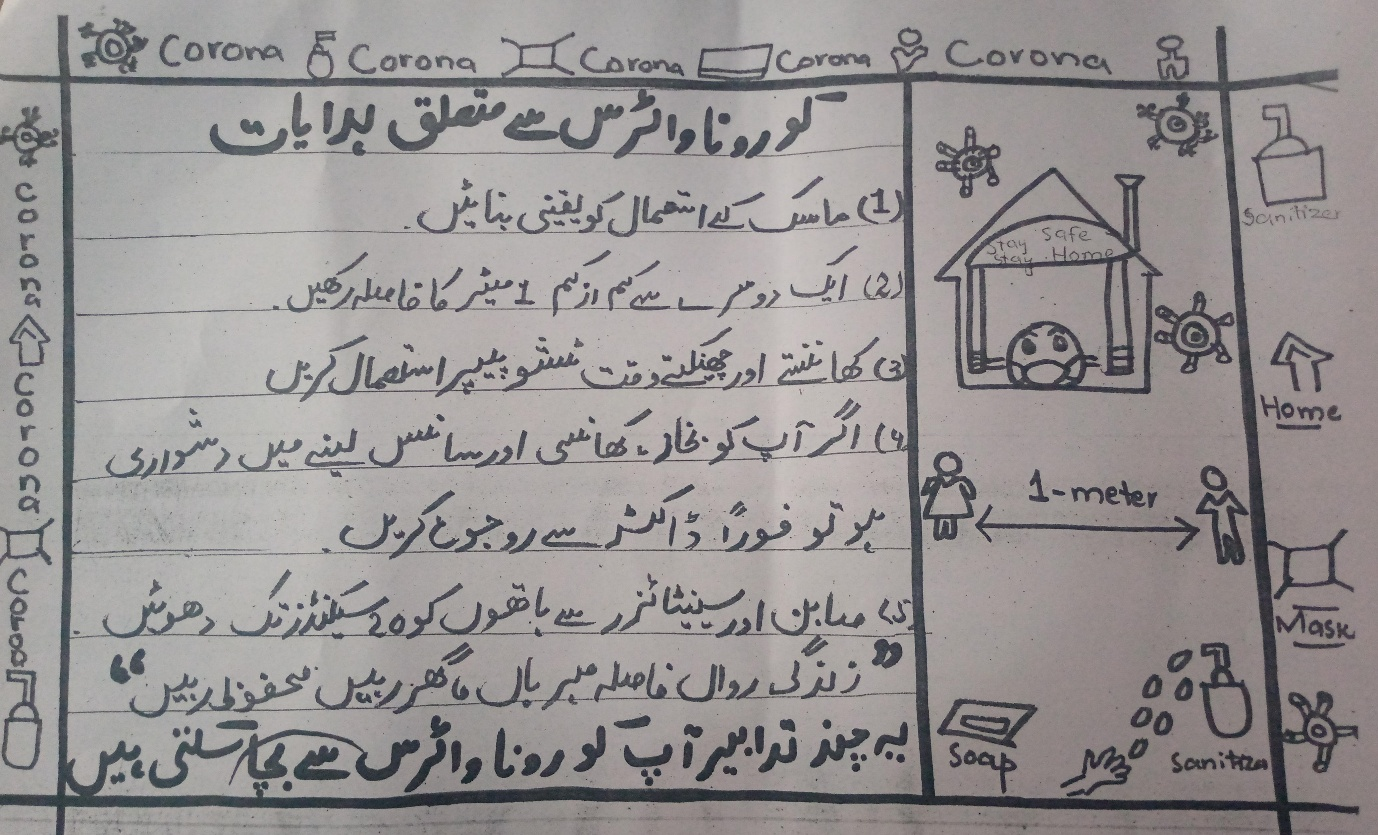 Corona Corona Corona Corona Corona
کورونا وائرس سے متعلق ہدایات
(1) ماسک کے استعمال کو یقینی بنائیں.
(2) ایک دوسرے سے کم از کم 1 میٹر کا فاصلہ رکھیں.
(3) کھانستے اور چھینکتے وقت ٹشو پیپر استعمال کریں
(4) اگر آپ کو بخار، کھانسی اور سانس لینے میں دشواری
ہو تو فوراً ڈاکٹر سے روجوع کریں.
(5) صابن اور سینیٹائزر سے ہاتھوں کو 20 سیکنڈز تک دھوئیں.
"زندگی رواں فاصلہ گھر رہیں محفوظ رہیں"
یہ چند تدابیر آپ کو رونا وائرس سے بچا سکتی ہیں
Corona
Corona
Corona
Stay Safe
Stay Home
1-meter
Soap
Sanitizer
Sanitizer
Home
Mask